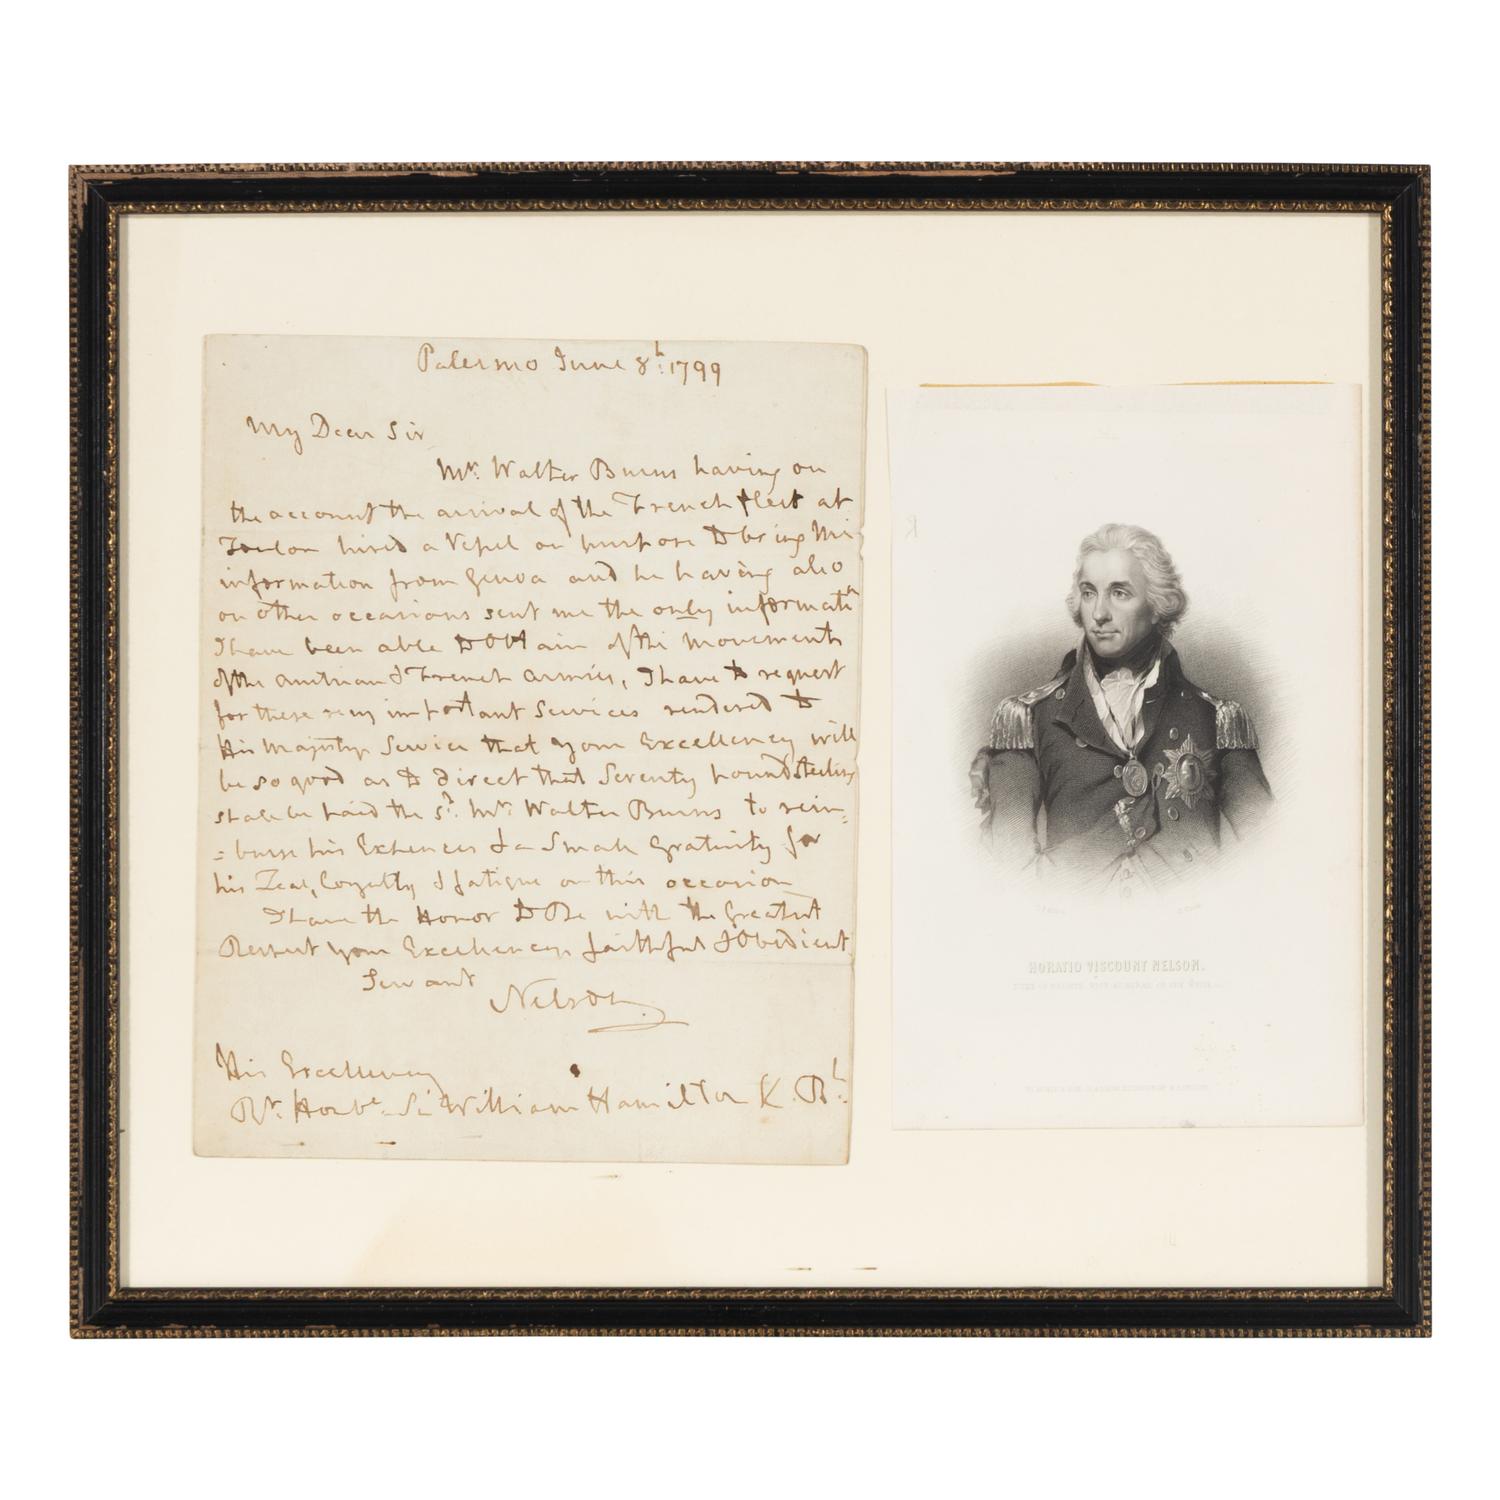 Palermo June 8th: 1799
My Dear Sir
Mr. Walter Burns having on
the account the arrival of the French fleet at
Toulon hired a Vessel on purpose to bring Me
information from Genoa and he having also
on other occasions sent me the only informatin
I have been able to obtain of the movements
of the Austrian & French Armies, I have to request
for these very important Services rendered to
His Majestys Service that your Excellency will
be so good as to direct that Seventy pounds sterling
shall be paid the sd. Mr. Walter Burns to reim=
=burse his Expences & a small gratuity for
his Zeal, Loyalty & fatigue on this occasion
I have the Honor to Be with the Greatest
Respect your Excellencys faithful & Obedient
Servant
Nelson.
His Excellency
Rt. Honble. Sir William Hamilton K. Bh.
HORATIO VISCOUNT NELSON.